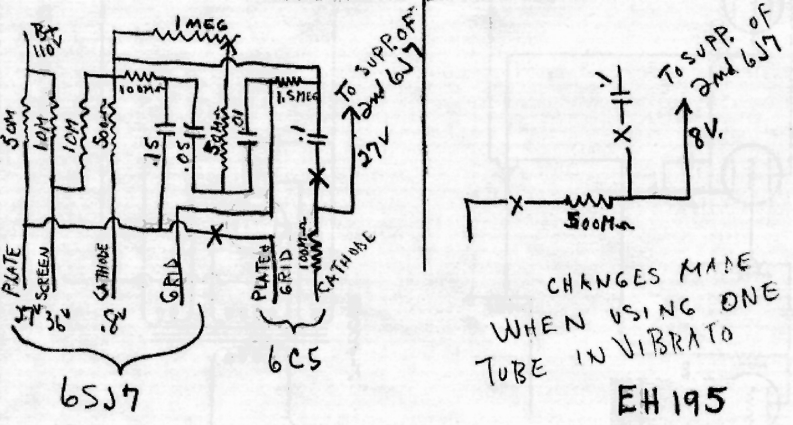 B+
110V
1 MEG
50M
10M
10M
50M
100MΩ
.15
.05
.01
1.5MEG
.1
TO SUPP. OF
2nd 6J7
27V
100MΩ
PLATE
SCREEN
CATHODE
GRID
PLATE &
GRID
CATHODE
36V
.8V
6SJ7
6C5
.1
TO SUPP. OF
2nd 6J7
8V.
500MΩ
CHANGES MADE
WHEN USING ONE
TUBE IN VIBRATO
EH195